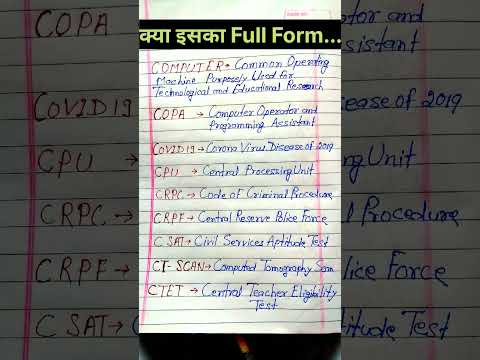 क्या इसका Full Form...
COMPUTER→ Common Operating
Machine Purposely Used for
Technological and Educational Research
COPA → Computer Operator and
Programming Assistant
COVID19→Corona Virus Disease of 2019
CPU → Central Processing Unit
CRPC → Code of Criminal Procedure
CRPF → Central Reserve Police Force
CSAT → Civil Services Aptitude Test
CT-SCAN→Computed Tomography Scan
CTET → Central Teacher Eligibility
Test
COPA
COVID19
CPU →
CRPC →
CRPF →
CSAT→
ator and
sistant
isease of 2019
ing Unit
Procedure
lice Force
titude Test